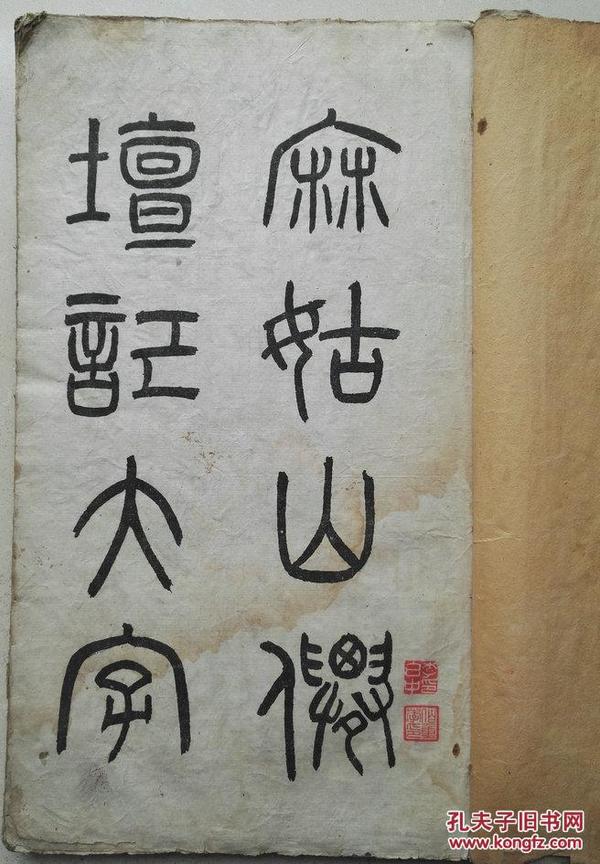 麻姑山僊
壇記大字
孔夫子旧书网
www.kongfz.com